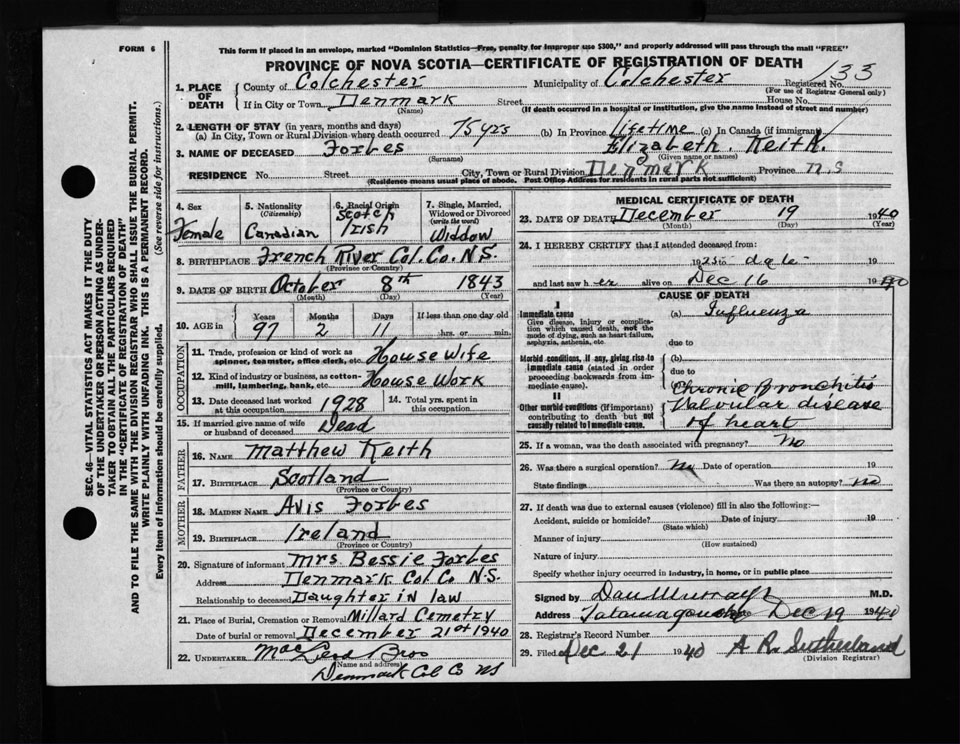 FORM 6
This form if placed in an envelope, marked "Dominion Statistics—Free, penalty for improper use $300," and properly addressed will pass through the mail "FREE"
PROVINCE OF NOVA SCOTIA—CERTIFICATE OF REGISTRATION OF DEATH
1. PLACE OF DEATH County of Colchester Municipality of Colchester Registered No. 133
(For use of Registrar General only)
If in City or Town Denmark Street House No.
(Name) (If death occurred in a hospital or institution, give the name instead of street and number)
2. LENGTH OF STAY (in years, months and days)
(a) In City, Town or Rural Division where death occurred 75 yrs (b) In Province lifetime (c) In Canada (if immigrant)
3. NAME OF DECEASED Forbes Elizabeth. Keith.
(Surname) (Given name or names)
RESIDENCE No. Street City, Town or Rural Division Denmark Province N.S
(Residence means usual place of abode. Post Office Address for residents in rural parts not sufficient)
4. Sex Female
5. Nationality (Citizenship) Canadian
6. Racial Origin Scotch Irish
7. Single, Married, Widowed or Divorced (write the word) Widdow
8. BIRTHPLACE French River Col. Co. N.S.
(Province or Country)
9. DATE OF BIRTH October 8th 1843
(Month) (Day) (Year)
10. AGE in Years Months Days If less than one day old
97 2 11 hrs. or min.
OCCUPATION
11. Trade, profession or kind of work as spinner, teamster, office clerk, etc. House Wife
12. Kind of industry or business, as cotton-mill, lumbering, bank, etc. House Work
13. Date deceased last worked at this occupation 1928
14. Total yrs. spent in this occupation
15. If married give name of wife or husband of deceased Dead
FATHER
16. NAME Matthew Keith
17. BIRTHPLACE Scotland
(Province or Country)
MOTHER
18. MAIDEN NAME Avis Forbes
19. BIRTHPLACE Ireland
(Province or Country)
20. Signature of informant Mrs. Bessie Forbes
Address Denmark Col. Co N.S.
Relationship to deceased Daughter in law
21. Place of Burial, Cremation or Removal Millard Cemetry
Date of burial or removal December 21st 1940
22. UNDERTAKER MacLeod Bros
(Name and address)
Denmark Col Co NS
MEDICAL CERTIFICATE OF DEATH
23. DATE OF DEATH December 19 1940
(Month) (Day) (Year)
24. I HEREBY CERTIFY that I attended deceased from:
1925 to date 19
and last saw her alive on Dec 16 1940
CAUSE OF DEATH
I
Immediate cause
Give disease, injury or complication which caused death, not the mode of dying, such as heart failure, asphyxia, asthenia, etc.
(a) Influenza
due to
Morbid conditions, if any, giving rise to immediate cause (stated in order proceeding backwards from immediate cause).
(b)
due to
II
Other morbid conditions (if important) contributing to death but not causally related to immediate cause.
Chronic Bronchitis
Valvular disease
of heart
25. If a woman, was the death associated with pregnancy? No
26. Was there a surgical operation? No Date of operation 19
State findings Was there an autopsy? No
27. If death was due to external causes (violence) fill in also the following:—
Accident, suicide or homicide? Date of injury 19
(State which)
Manner of injury
(How sustained)
Nature of injury
Specify whether injury occurred in industry, in home, or in public place
Signed by Dan Murray M.D.
Address Tatamagouche Dec 19 1940
28. Registrar's Record Number
29. Filed Dec 21 1940 A R Sutherland
(Division Registrar)
SEC. 46—VITAL STATISTICS ACT MAKES IT THE DUTY
OF THE UNDERTAKER OR PERSON ACTING AS UNDER-
TAKER TO OBTAIN ALL THE PARTICULARS REQUIRED
IN THE "CERTIFICATE OF REGISTRATION OF DEATH"
AND TO FILE THE SAME WITH THE DIVISION REGISTRAR WHO SHALL ISSUE THE BURIAL PERMIT.
WRITE PLAINLY WITH UNFADING INK. THIS IS A PERMANENT RECORD.
Every item of Information should be carefully supplied. (See reverse side for instructions.)